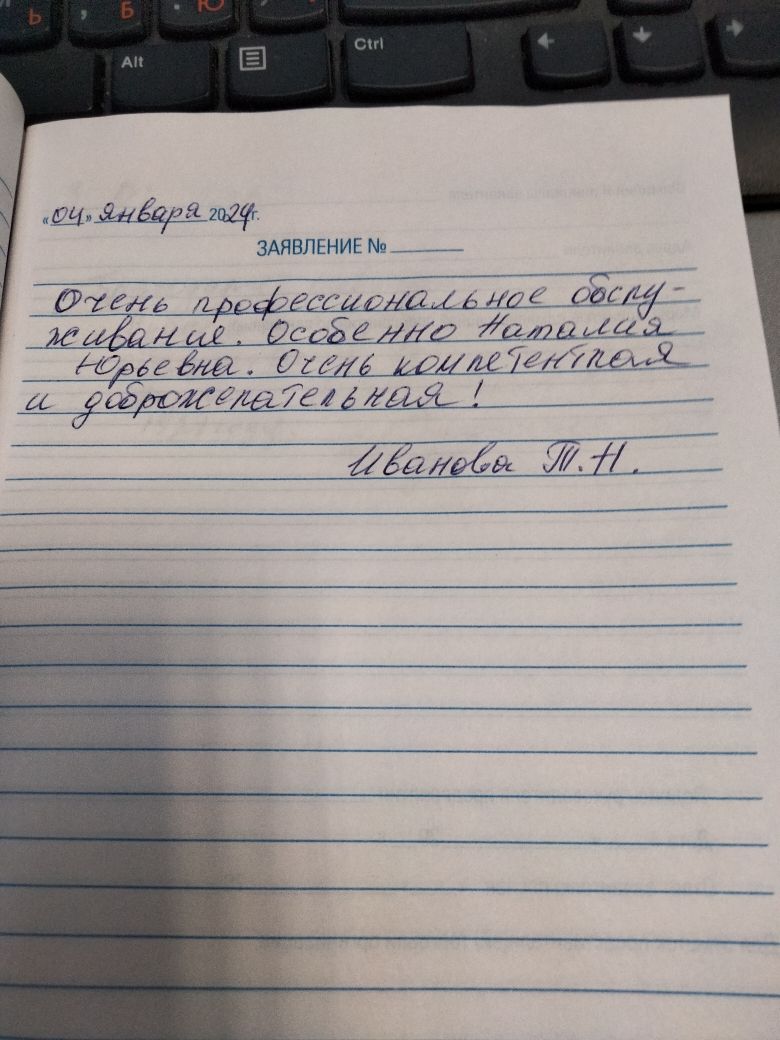 Ь
Б
Ю
Alt
Ctrl
«04» января 2024г.
ЗАЯВЛЕНИЕ №
Очень профессиональное обслу-
живание. Особенно Наталия
Юрьевна. Очень компетентная
и доброжелательная!
Иванова Т.Н.